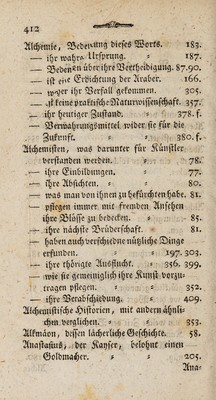 412
Alchemie, Bedeutung dieses Worts. 183.
— ihr wahrer Ursprung. 187.
— Bedenken über ihre Vertheidigung. 87.90.
— ist eine Erdichtung der Araber. 166.
— woher ihr Verfall gekommen. 305.
— ist keine praktische Naturwissenschaft. 357.
— ihr heutiger Zustand. 378. f.
— Verwahrungsmittel wider sie für die
Zukunft. 380. f.
Alchemisten, was darunter für Künstler
verstanden werden. 78.
— ihre Einbildungen. 77.
— ihre Absichten. 80.
— was man von ihnen zu befürchten habe. 81.
— pflegen immer mit fremden Ansehen
ihre Blösse zu bedecken. 85.
— ihre nächste Brüderschaft. 81.
— haben auch verschiedne nützliche Dinge
erfunden. 197. 303.
— ihre thörigte Ausflucht. 356. 399.
— wie sie gemeiniglich ihre Kunst vorzu-
tragen pflegen. 352.
— ihre Verabschiedung. 409.
Alchemistische Historien, mit andern ähnli-
chen verglichen. 353.
Alkmäon, dessen lächerliche Geschichte. 58.
Anastasius, der Kayser, belohnt einen
Goldmacher. 205.
Ana-